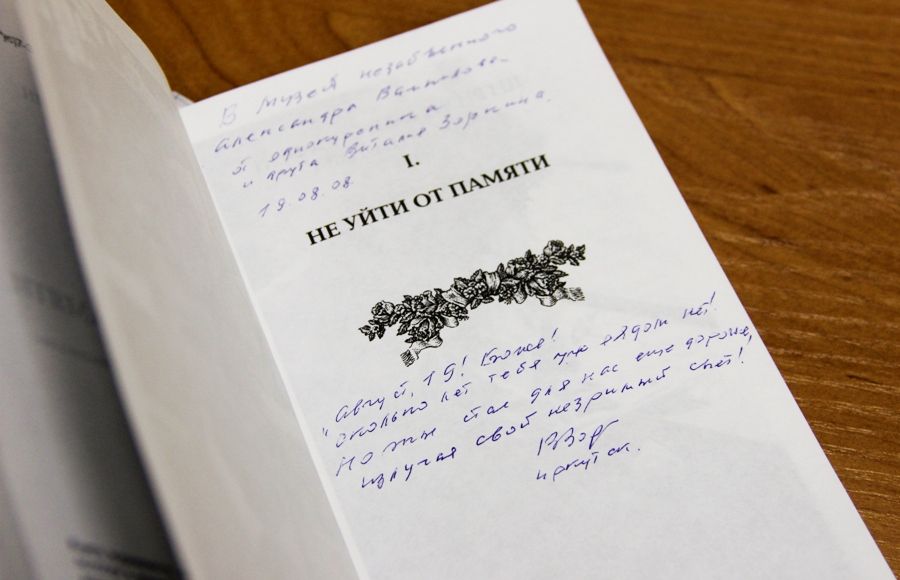 В музей незабвенного
Александра Вампилова –
от однокурсника
и друга Виталия Зоркина.
19.08.08.
I.
НЕ УЙТИ ОТ ПАМЯТИ
"Август, 19! Боже!
Сколько лет тебя уже рядом нет!
Но ты стал для нас еще дороже,
излучая свой незримый свет!"
ВЗор
Иркутск.